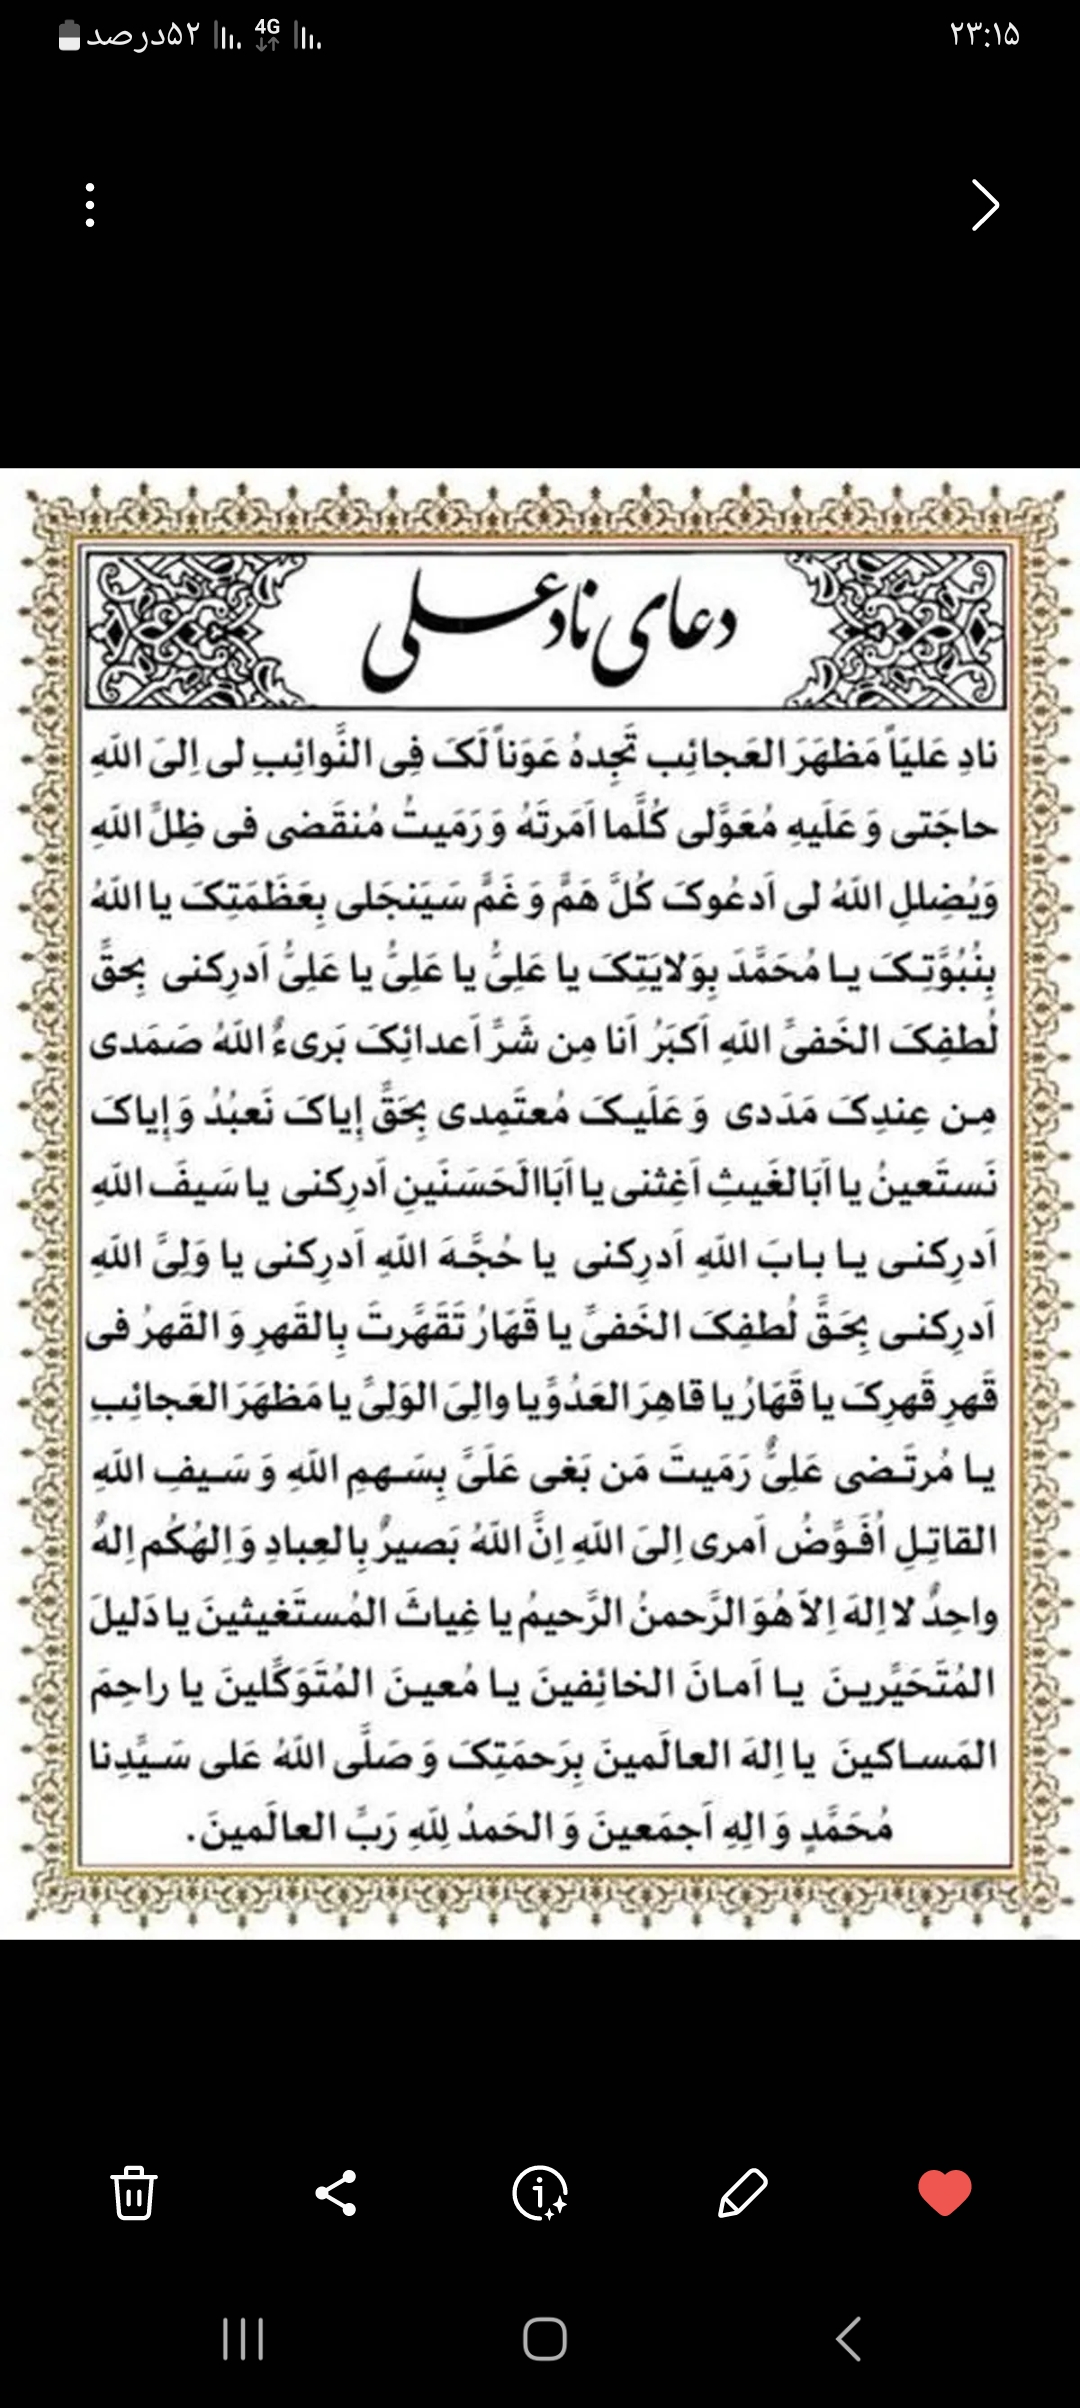 ۲۳:۱۵
4G
۵۲درصد
دعای ناد علی
نادِ عَلیَاً مَظهَرَ العَجائِب تَجِدهُ عَوَناً لَکَ فِی النَّوائِبِ لی اِلیَ اللهِ
حاجَتی وَ عَلَیهِ مُعَوَّلی کُلَّما اَمَرتَهُ وَ رَمَیتُ مُنقَضی فی ظِلَّ اللهِ
وَیُضِللِ اللهُ لی اَدعُوکَ کُلَّ هَمًّ وَ غَمًّ سَیَنجَلی بِعَظَمَتِکَ یا اللهُ
بِنُبُوَّتِکَ یا مُحَمَّدَ بِوَلایَتِکَ یا عَلِیُّ یا عَلِیُّ یا عَلِیُّ اَدرِکنی بِحقَّ
لُطفِکَ الخَفیَّ اللهِ اَکبَرُ اَنا مِن شَرَّ اَعدائِکَ بَریءٌ اللهُ صَمَدی
مِن عِندِکَ مَدَدی وَ عَلَیکَ مُعتَمِدی بِحَقَّ إیاکَ نَعبُدُ وَ إیاکَ
نَستَعینُ یا اَبَالغَیثِ اَغِثنی یا اَبَاالَحَسَنَینِ اَدرِکنی یا سَیفَ اللهِ
اَدرِکنی یا بابَ اللهِ اَدرِکنی یا حُجَّهَ اللهِ اَدرِکنی یا وَلِیَّ اللهِ
اَدرِکنی بِحَقَّ لُطفِکَ الخَفیَّ یا قَهّارُ تَقَهَّرتَ بِالقَهرِ وَ القَهرُ فی
قَهرِ قَهرِکَ یا قَهّارُ یا قاهِرَ العَدُوَّ یا والِیَ الوَلِیَّ یا مَظهَرَ العَجائِبِ
یا مُرتَضی عَلِیُّ رَمَیتَ مَن بَغی عَلَیَّ بِسَهمِ اللهِ وَ سَیفِ اللهِ
القاتِلِ اُفَوَّضُ اَمری اِلیَ اللهِ اِنَّ اللهُ بَصیرٌ بِالعِبادِ وَ اِلهُکُم اِلهٌ
واحِدٌ لا اِلهَ اِلاّ هُوَ الرَّحمنُ الرَّحیمُ یا غِیاثَ المُستَغیثینَ یا دَلیلَ
المُتَحَیَّرینَ یا اَمانَ الخائِفینَ یا مُعینَ المُتَوَکَّلینَ یا راحِمَ
المَساکینَ یا اِلهَ العالَمینَ بِرَحمَتِکَ وَ صَلَّی اللهُ عَلی سَیَّدِنا
مُحَمَّدٍ وَ الِهِ اَجمَعینَ وَ الحَمدُ لِلّهِ رَبَّ العالَمینَ.